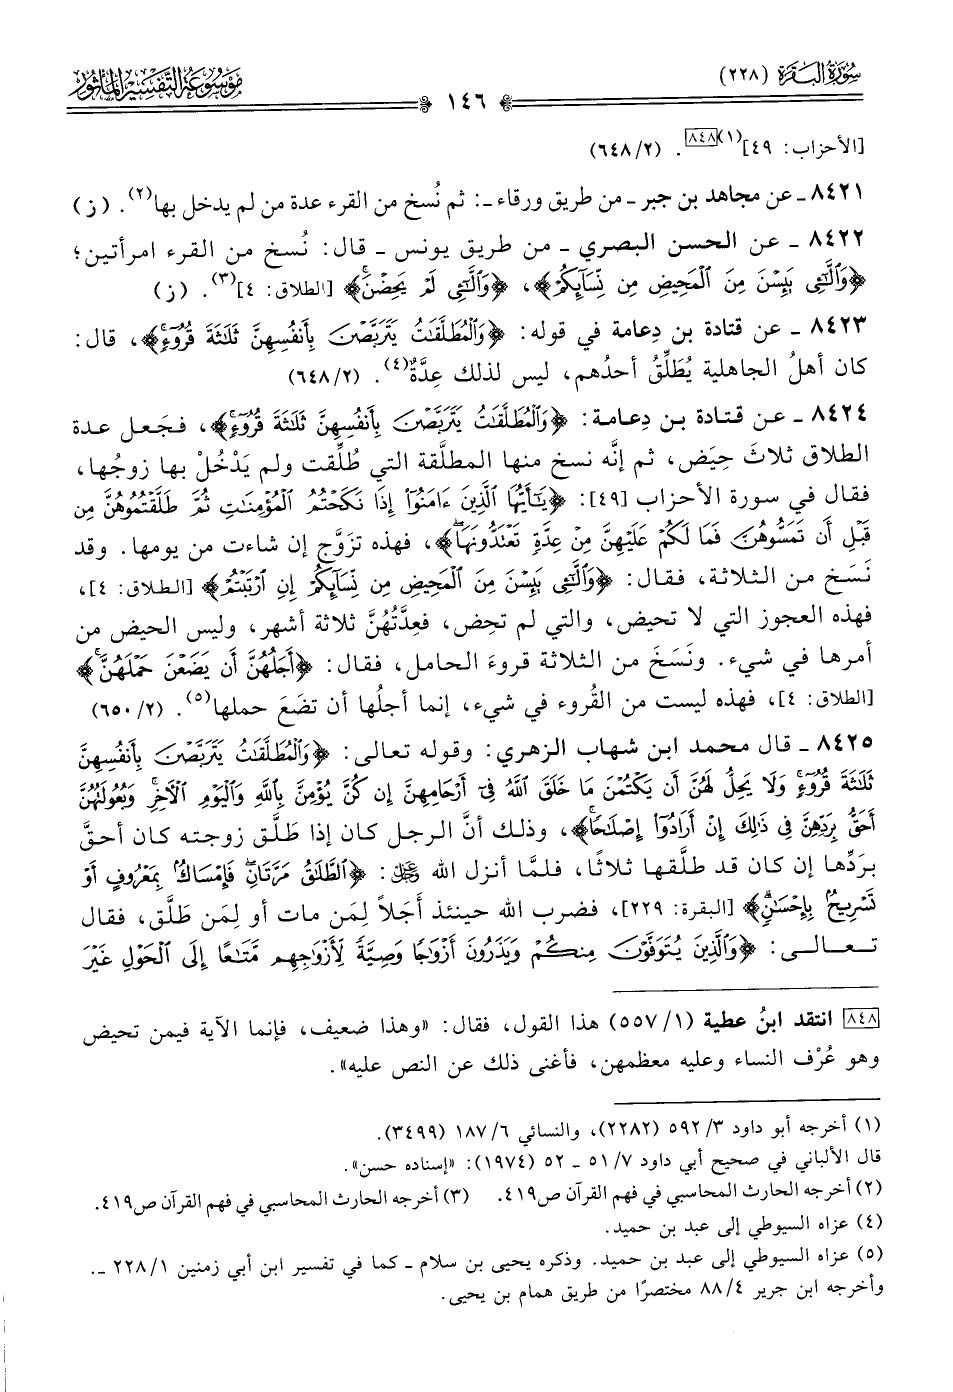 سورة البقرة (٢٢٨)
موسوعة التفسير المأثور
١٤٦
[الأحزاب: ٤٩](١)[٨٤٨]. (٢/٦٤٨)
٨٤٢١ ـ عن مجاهد بن جبر ـ من طريق ورقاء ـ: ثم نُسخ من القرء عدة من لم يدخل بها(٢). (ز)
٨٤٢٢ ـ عن الحسن البصري ـ من طريق يونس ـ قال: نُسخ من القرء امرأتين؛
﴿وَالَّٰٓـِٔي يَئِسْنَ مِنَ الْمَحِيضِ مِن نِّسَآئِكُمْ﴾، ﴿وَالَّٰٓـِٔي لَمْ يَحِضْنَ﴾ [الطلاق: ٤](٣). (ز)
٨٤٢٣ ـ عن قتادة بن دِعامة في قوله: ﴿وَالْمُطَلَّقَاتُ يَتَرَبَّصْنَ بِأَنفُسِهِنَّ ثَلَاثَةَ قُرُوٓءٍ﴾، قال:
كان أهلُ الجاهلية يُطَلِّقُ أحدُهم، ليس لذلك عِدَّةٌ(٤). (٢/٦٤٨)
٨٤٢٤ ـ عن قتادة بن دِعامة: ﴿وَالْمُطَلَّقَاتُ يَتَرَبَّصْنَ بِأَنفُسِهِنَّ ثَلَاثَةَ قُرُوٓءٍ﴾، فجعل عدة
الطلاق ثلاثَ حِيَض، ثم إنَّه نسخ منها المطلَّقة التي طُلِّقت ولم يَدْخُلْ بها زوجُها،
فقال في سورة الأحزاب [٤٩]: ﴿يَٰٓأَيُّهَا الَّذِينَ ءَامَنُوٓا إِذَا نَكَحْتُمُ الْمُؤْمِنَاتِ ثُمَّ طَلَّقْتُمُوهُنَّ مِن
قَبْلِ أَن تَمَسُّوهُنَّ فَمَا لَكُمْ عَلَيْهِنَّ مِنْ عِدَّةٍ تَعْتَدُّونَهَا﴾، فهذه تزوَّج إن شاءت من يومها. وقد
نَسَخ من الثلاثة، فقال: ﴿وَالَّٰٓـِٔي يَئِسْنَ مِنَ الْمَحِيضِ مِن نِّسَآئِكُمْ إِنِ ارْتَبْتُمْ﴾ [الطلاق: ٤]،
فهذه العجوز التي لا تحيض، والتي لم تحِض، فعِدَّتُهُنَّ ثلاثة أشهر، وليس الحيض من
أمرها في شيء. ونَسَخَ من الثلاثة قروءَ الحامل، فقال: ﴿أَجَلُهُنَّ أَن يَضَعْنَ حَمْلَهُنَّ﴾
[الطلاق: ٤]، فهذه ليست من القُروء في شيء، إنما أجلُها أن تضَعَ حملها(٥). (٢/٦٥٠)
٨٤٢٥ ـ قال محمد ابن شهاب الزهري: وقوله تعالى: ﴿وَالْمُطَلَّقَاتُ يَتَرَبَّصْنَ بِأَنفُسِهِنَّ
ثَلَاثَةَ قُرُوٓءٍ وَلَا يَحِلُّ لَهُنَّ أَن يَكْتُمْنَ مَا خَلَقَ اللَّهُ فِىٓ أَرْحَامِهِنَّ إِن كُنَّ يُؤْمِنَّ بِاللَّهِ وَالْيَوْمِ الْآخِرِ وَبُعُولَتُهُنَّ
أَحَقُّ بِرَدِّهِنَّ فِى ذَٰلِكَ إِنْ أَرَادُوٓا إِصْلَاحًا﴾، وذلك أنَّ الرجل كان إذا طَلَّق زوجته كان أحقَّ
بردِّها إن كان قد طلَّقها ثلاثًا، فلمَّا أنزل الله ﷻ: ﴿الطَّلَاقُ مَرَّتَانِ فَإِمْسَاكٌۢ بِمَعْرُوفٍ أَوْ
تَسْرِيحٌۢ بِإِحْسَانٍ﴾ [البقرة: ٢٢٩]، فضرب الله حينئذ أجَلاً لِمَن مات أو لِمَن طَلَّق، فقال
تعالى: ﴿وَالَّذِينَ يُتَوَفَّوْنَ مِنكُمْ وَيَذَرُونَ أَزْوَاجًا وَصِيَّةً لِّأَزْوَاجِهِم مَّتَاعًا إِلَى الْحَوْلِ غَيْرَ
[٨٤٨] انتقد ابنُ عطية (١/٥٥٧) هذا القول، فقال: «وهذا ضعيف، فإنما الآية فيمن تحيض
وهو عُرْف النساء وعليه معظمهن، فأغنى ذلك عن النص عليه».
(١) أخرجه أبو داود ٣/٥٩٢ (٢٢٨٢)، والنسائي ٦/١٨٧ (٣٤٩٩).
قال الألباني في صحيح أبي داود ٧/٥١ ـ ٥٢ (١٩٧٤): «إسناده حسن».
(٢) أخرجه الحارث المحاسبي في فهم القرآن ص٤١٩. (٣) أخرجه الحارث المحاسبي في فهم القرآن ص٤١٩.
(٤) عزاه السيوطي إلى عبد بن حميد.
(٥) عزاه السيوطي إلى عبد بن حميد. وذكره يحيى بن سلام ـ كما في تفسير ابن أبي زمنين ١/٢٢٨ ـ.
وأخرجه ابن جرير ٤/٨٨ مختصرًا من طريق همام بن يحيى.